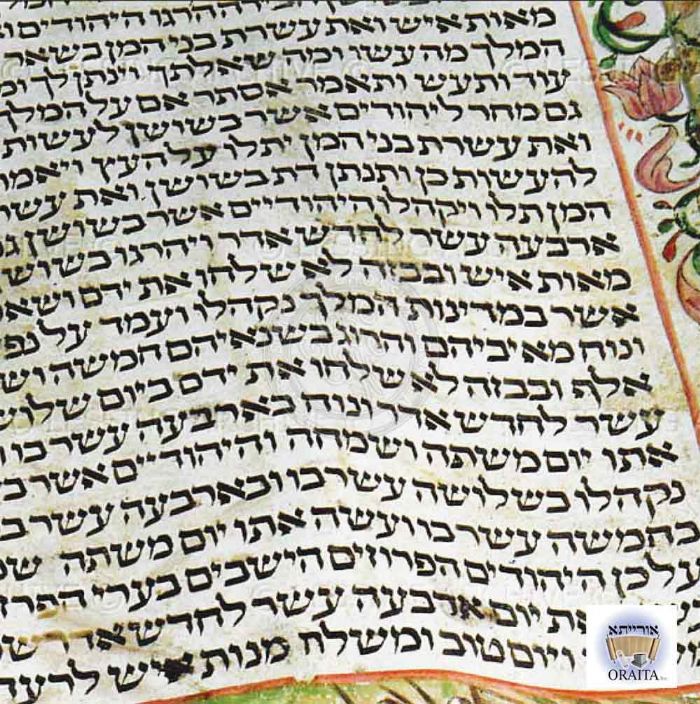 הרגו היהודים
מאות איש ואת עשרת בני המן בשאר
המלך מה עשו ומה שאלתך וינתן לך ומ
עוד ותעש ותאמר אסתר אם על המלך
גם מחר ליהודים אשר בשושן לעשות
ואת עשרת בני המן יתלו על העץ ויאמר
להעשות כן ותנתן דת בשושן ואת עשר
המן תלו ויקהלו היהודיים אשר בשושן ג
ארבעה עשר לחדש אדר ויהרגו בשוש
מאות איש ובבזה לא שלחו את ידם ושא
אשר במדינות המלך נקהלו ועמד על נפ
ונוח מאיביהם והרוג בשנאיהם חמשה וש
אלף ובבזה לא שלחו את ידם ביום שלוש
עשר לחדש אדר ונוח בארבעה עשר בו ו
אתו יום משתה ושמחה והיהודיים אשר ב
נקהלו בשלושה עשר בו ובארבעה עשר ב
בחמשה עשר בו ועשה אתו יום משתה ש
על כן היהודים הפרוזים הישבים בערי הפרז
את יום ארבעה עשר לחדש אדר ש
ויום טוב ומשלח מנות איש לרעה
אורייתא
ORAITA